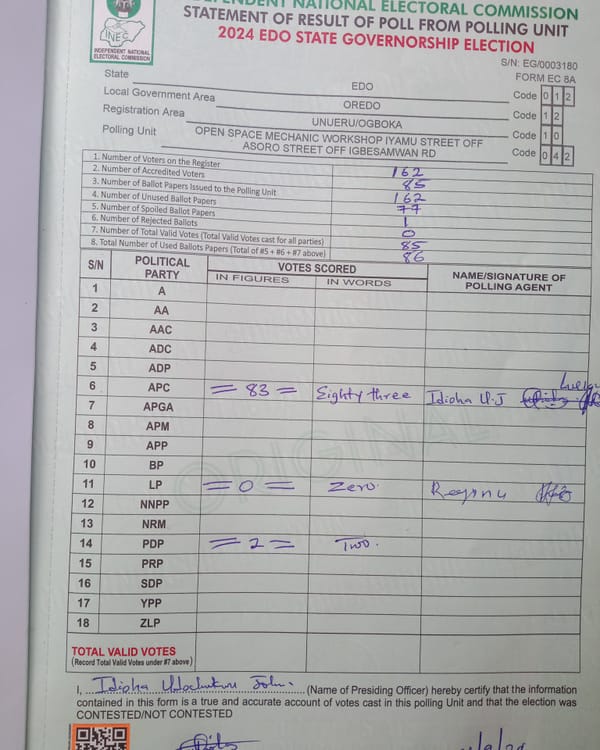 INDEPENDENT NATIONAL ELECTORAL COMMISSION
STATEMENT OF RESULT OF POLL FROM POLLING UNIT
2024 EDO STATE GOVERNORSHIP ELECTION
INEC
INDEPENDENT NATIONAL
ELECTORAL COMMISSION
S/N: EG/0003180
FORM EC 8A
State EDO Code 0 1 2
Local Government Area OREDO Code 1 2
Registration Area UNUERU/OGBOKA Code 1 0
Polling Unit OPEN SPACE MECHANIC WORKSHOP IYAMU STREET OFF Code 0 4 2
ASORO STREET OFF IGBESAMWAN RD
1. Number of Voters on the Register 162
2. Number of Accredited Voters 85
3. Number of Ballot Papers Issued to the Polling Unit 162
4. Number of Unused Ballot Papers 77
5. Number of Spoiled Ballot Papers 1
6. Number of Rejected Ballots 0
7. Number of Total Valid Votes (Total Valid Votes cast for all parties) 85
8. Total Number of Used Ballots Papers (Total of #5 + #6 + #7 above) 86
S/N POLITICAL PARTY VOTES SCORED NAME/SIGNATURE OF POLLING AGENT
IN FIGURES IN WORDS
1 A
2 AA
3 AAC
4 ADC
5 ADP
6 APC = 83 = Eighty three Idioha U.J
7 APGA
8 APM
9 APP
10 BP
11 LP = 0 = Zero.
12 NNPP
13 NRM
14 PDP = 2 = Two.
15 PRP
16 SDP
17 YPP
18 ZLP
ORIGINAL
TOTAL VALID VOTES
(Record Total Valid Votes under #7 above)
I, Idioha John. (Name of Presiding Officer) hereby certify that the information
contained in this form is a true and accurate account of votes cast in this polling Unit and that the election was
CONTESTED/NOT CONTESTED